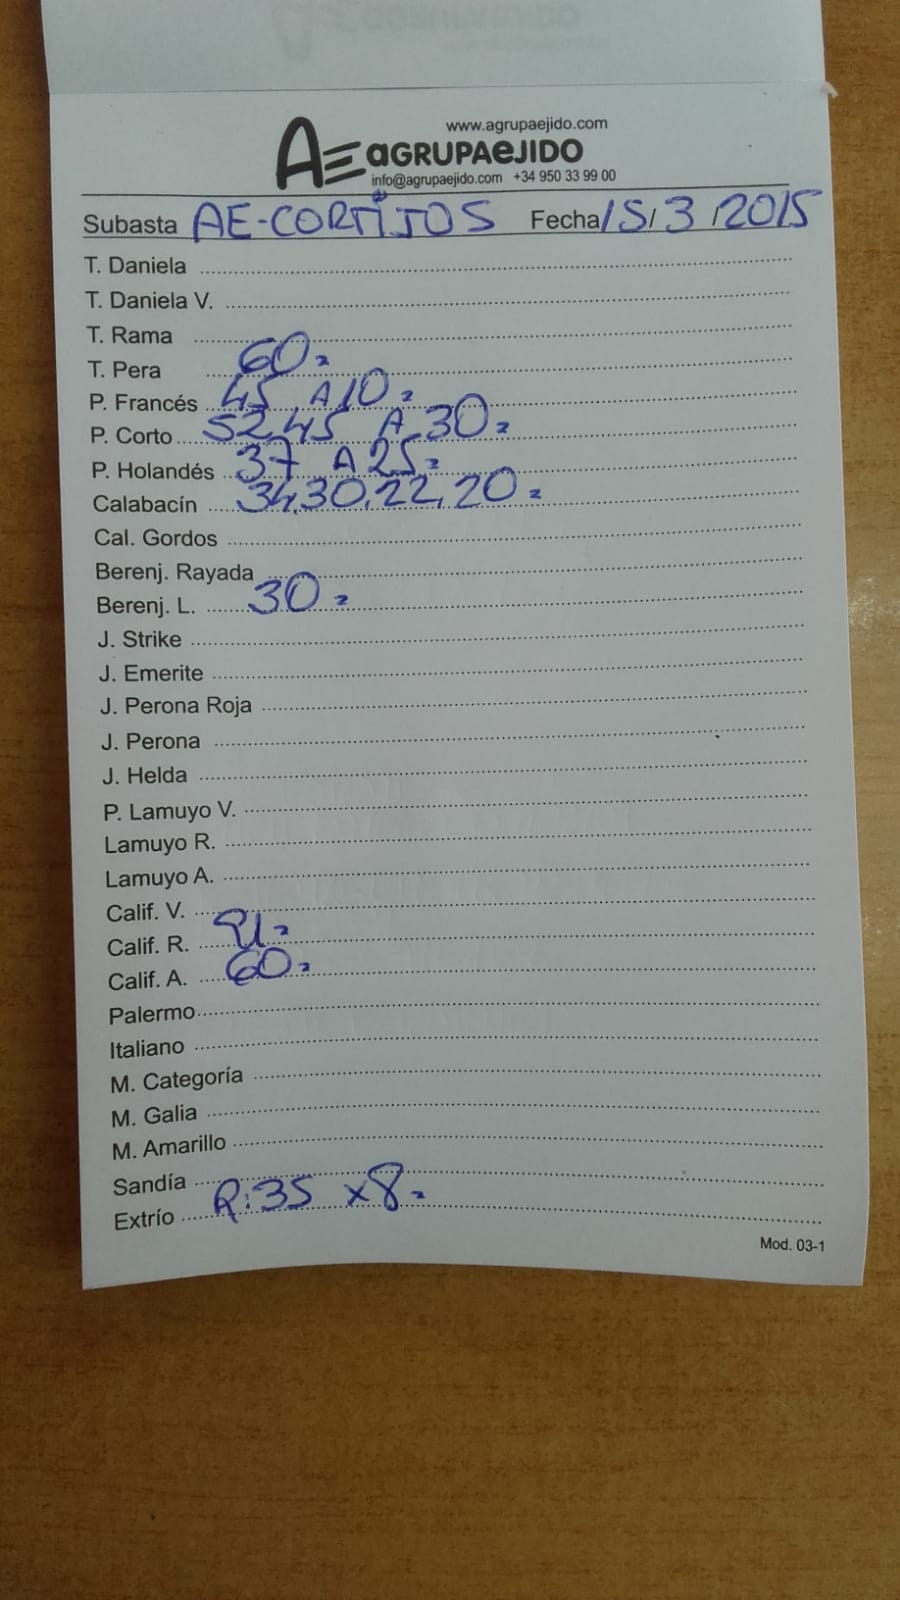 www.agrupaejido.com
AE AGRUPAEJIDO
info@agrupaejido.com +34 950 33 99 00
Subasta AE-CORTIJOS Fecha 15/3/2015
T. Daniela
T. Daniela V.
T. Rama
T. Pera 60
P. Francés 45 A 10
P. Corto 52,45 A 30
P. Holandés 37 A 25
Calabacín 34,30,22,20
Cal. Gordos
Berenj. Rayada
Berenj. L. 30
J. Strike
J. Emerite
J. Perona Roja
J. Perona
J. Helda
P. Lamuyo V.
Lamuyo R.
Lamuyo A.
Calif. V.
Calif. R.
Calif. A. 60
Palermo
Italiano
M. Categoría
M. Galia
M. Amarillo
Sandía
Extrío R:35 x8
Mod. 03-1